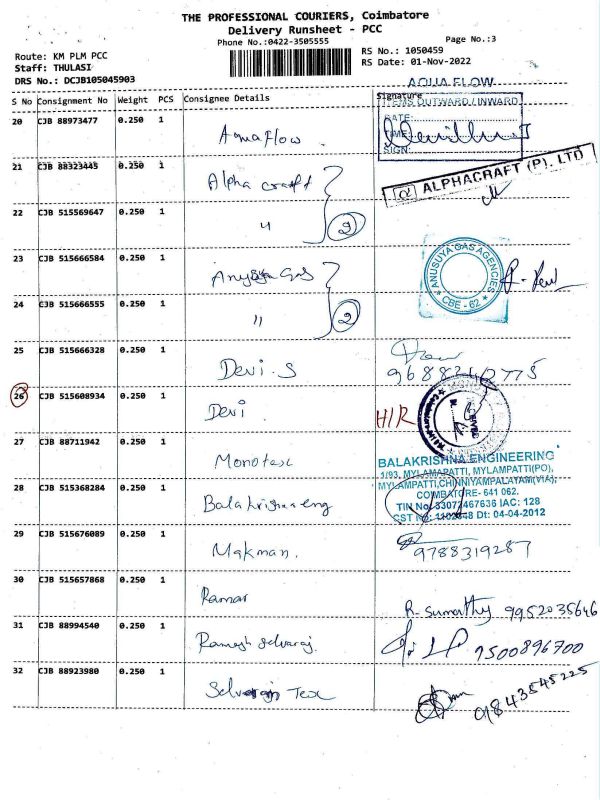 THE PROFESSIONAL COURIERS, Coimbatore
Delivery Runsheet - PCC
Phone No.:0422-3505555
Page No.:3
Route: KM PLM PCC
Staff: THULASI
DRS No.: DCJB105045903
RS No.: 1050459
RS Date: 01-Nov-2022
S No Consignment No Weight PCS Consignee Details Signature
AQUA FLOW
ITEMS OUTWARD / INWARD
DATE:
TIME:
SIGN:
20 CJB 88973477 0.250 1 Aquaflow
21 CJB 88323445 0.250 1 Alpha craft
ALPHACRAFT (P). LTD
22 CJB 515569647 0.250 1 〃 2
23 CJB 515666584 0.250 1 Anusya Gas
ANUSUYA GAS AGENCIES
CBE - 62
24 CJB 515666555 0.250 1 〃 2
25 CJB 515666328 0.250 1 Devi. S
9688340775
26 CJB 515608934 0.250 1 Devi H/R
27 CJB 88711942 0.250 1 Monotex
BALAKRISHNA ENGINEERING
1/93, MYLAMAPATTI, MYLAMPATTI(PO),
MYLAMPATTI,CHINNIYAMPALAYAM(VIA),
COIMBATORE- 641 062.
TIN No: 33072467636 IAC: 128
CST No: 1102848 Dt: 04-04-2012
28 CJB 515368284 0.250 1 Balakrishna eng
29 CJB 515676089 0.250 1 Makman.
9788319287
30 CJB 515657868 0.250 1 Ramar
R. Sumathy 9952035646
31 CJB 88994540 0.250 1 Ramesh Selvaraj.
9500896700
32 CJB 88923980 0.250 1 Selvaraj Tex
9843545225